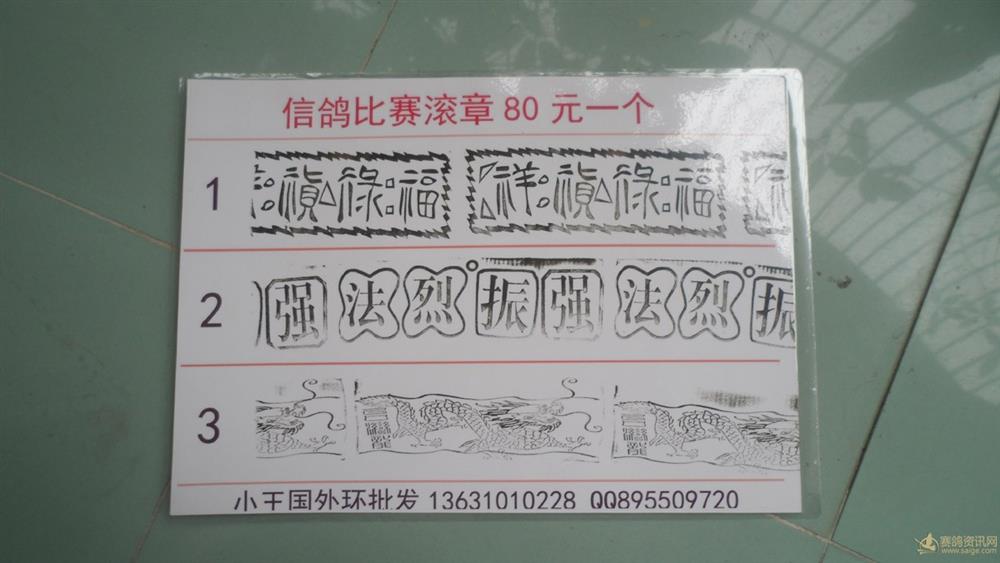 信鸽比赛滚章80元一个
1
滇祿福 洋滇祿福
2
强法烈振强法烈振
3
小王国外环批发 13631010228 QQ895509720
赛鸽资讯网
www.saige.com